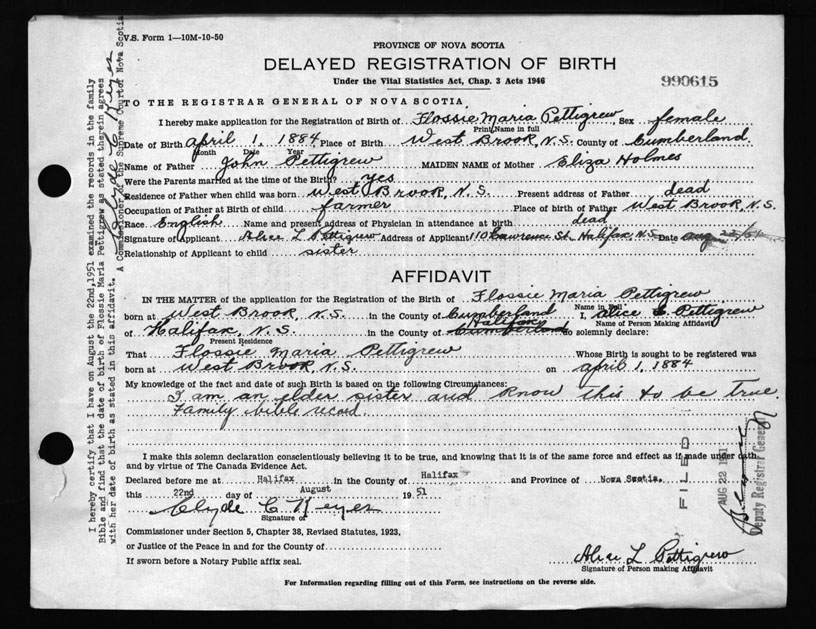 V.S. Form 1—10M-10-50
PROVINCE OF NOVA SCOTIA
DELAYED REGISTRATION OF BIRTH
Under the Vital Statistics Act, Chap. 3 Acts 1946
990615
TO THE REGISTRAR GENERAL OF NOVA SCOTIA,
I hereby make application for the Registration of Birth of Flossie Maria Pettigrew, Sex female
Print Name in full
Date of Birth April 1, 1884 Place of Birth West Brook, N.S. County of Cumberland.
Month Date Year
Name of Father John Pettigrew MAIDEN NAME of Mother Eliza Holmes
Were the Parents married at the time of Birth? yes
Residence of Father when child was born West Brook, N.S. Present address of Father dead
Occupation of Father at Birth of child farmer Place of birth of Father West Brook, N.S.
Race English Name and present address of Physician in attendance at birth dead
Signature of Applicant Alice L Pettigrew Address of Applicant 110 Lawrence St. Halifax N.S. Date Aug 22/51
Relationship of Applicant to child sister
AFFIDAVIT
IN THE MATTER of the application for the Registration of the Birth of Flossie Maria Pettigrew
Name in Full
born at West Brook, N.S. in the County of Cumberland I, Alice L Pettigrew
Name of Person Making Affidavit
of Halifax, N.S. in the County of Cumberland Halifax do solemnly declare:
Present Residence
That Flossie Maria Pettigrew Whose Birth is sought to be registered was
born at West Brook N.S. on April 1, 1884
My knowledge of the fact and date of such Birth is based on the following Circumstances:
I am an elder sister and know this to be true.
Family bible record.
I make this solemn declaration conscientiously believing it to be true, and knowing that it is of the same force and effect as if made under oath
and by virtue of The Canada Evidence Act.
Declared before me at Halifax in the County of Halifax and Province of Nova Scotia.
this 22nd day of August 1951
Clyde C Keyes
Signature of
Commissioner under Section 5, Chapter 38, Revised Statutes, 1923,
or Justice of the Peace in and for the County of
If sworn before a Notary Public affix seal.
Alice L Pettigrew
Signature of Person making Affidavit
For Information regarding filling out of this Form, see instructions on the reverse side.
I hereby certify that I have on August the 22nd, 1951 examined the records in the family
Bible and find that the date of birth of Flossie Maria Pettigrew as stated therein agrees
with her date of birth as stated in this affidavit.
Clyde C Keyes
A Commissioner of the Supreme Court of Nova Scotia
FILED
AUG 22 1951
Deputy Registrar General